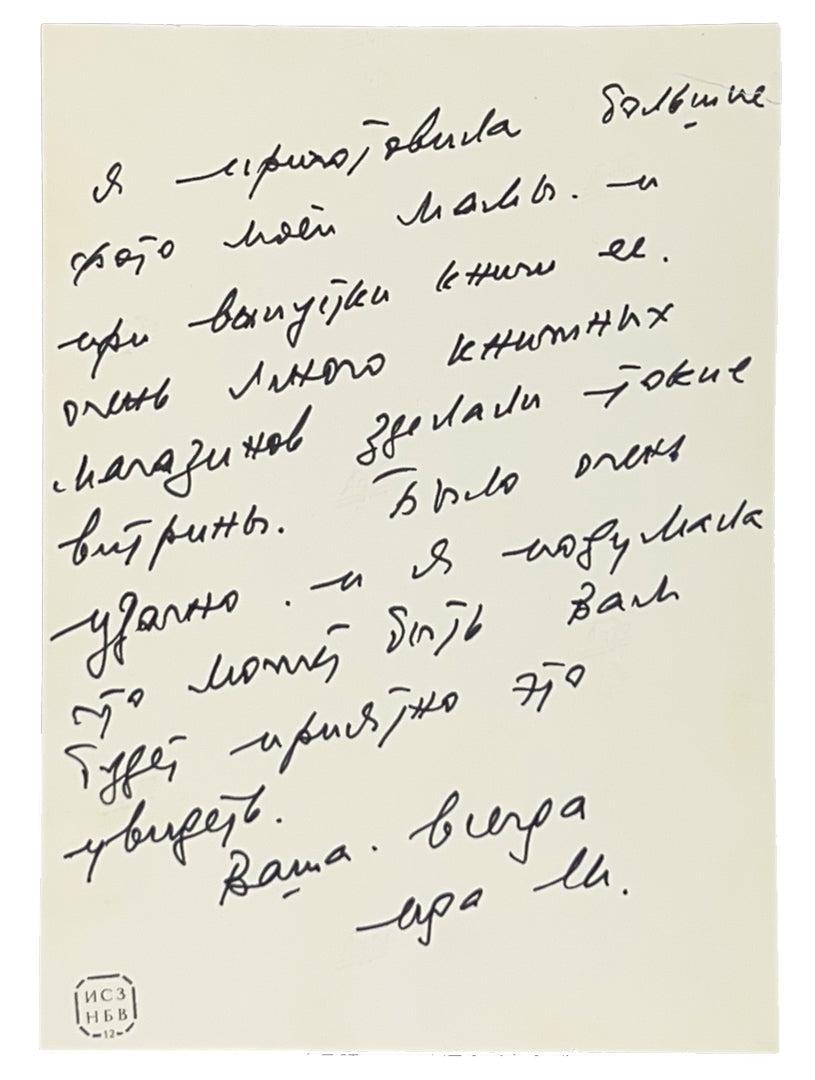 я приготовила большие
фото моей мамы. и
при выпустки книги ее.
очень много книжных
магазинов зделали такие
витрины. Было очень
удачно. и я подумала
что может быть Вам
будет приятно это
увидеть.
Ваша. всегда
ира М.
ИСЗ
НБВ
-12-